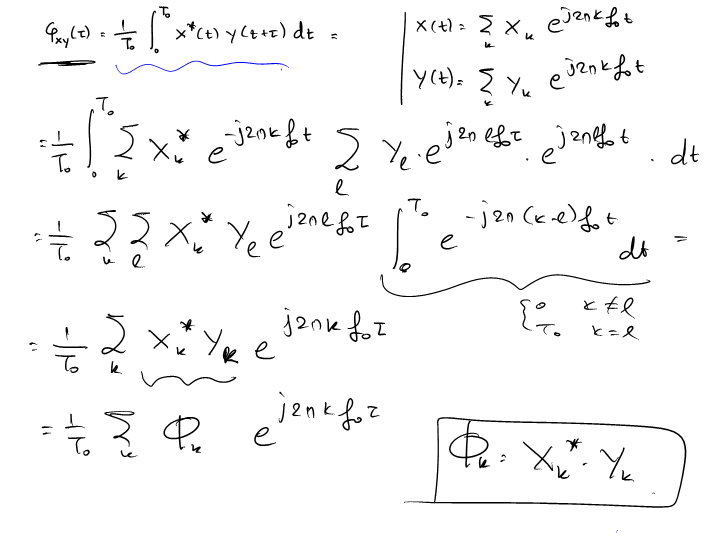 φ_xy(τ) = 1/T₀ ∫₀^T₀ x*(t) y(t+τ) dt =
x(t) = Σ_k X_k e^{j2πkf₀t}
y(t) = Σ_k Y_k e^{j2πkf₀t}
= 1/T₀ ∫₀^T₀ Σ_k X_k* e^{-j2πkf₀t} Σ_ℓ Y_ℓ · e^{j2πℓf₀τ} · e^{j2πℓf₀t} · dt
= 1/T₀ Σ_k Σ_ℓ X_k* Y_ℓ e^{j2πℓf₀τ} ∫₀^T₀ e^{-j2π(k-ℓ)f₀t} dt =
{ 0 k≠ℓ
T₀ k=ℓ
= 1/T₀ Σ_k X_k* Y_k e^{j2πkf₀τ}
= 1/T₀ Σ_k Φ_k e^{j2πkf₀τ}
Φ_k = X_k* · Y_k